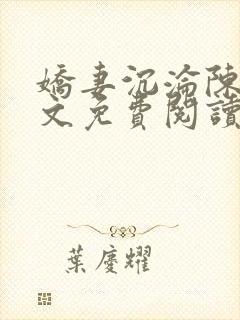 嬌妻沉淪陳
文免費閱讀
葉慶耀